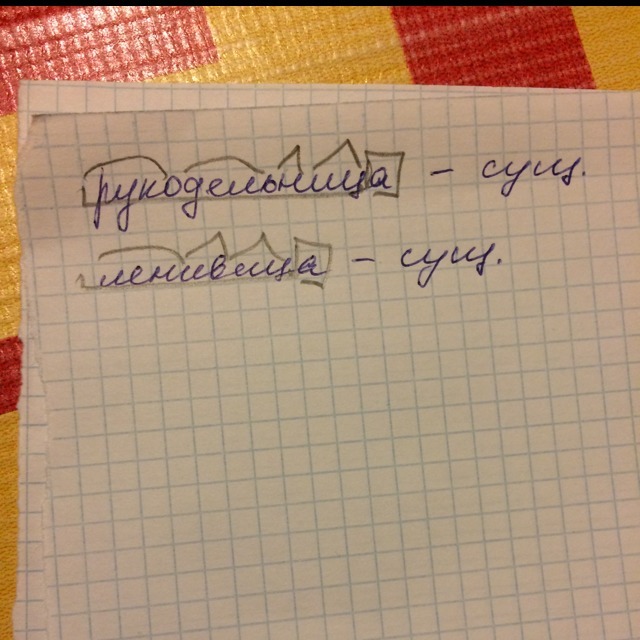 рукодельница - сущ.
ленивица - сущ.